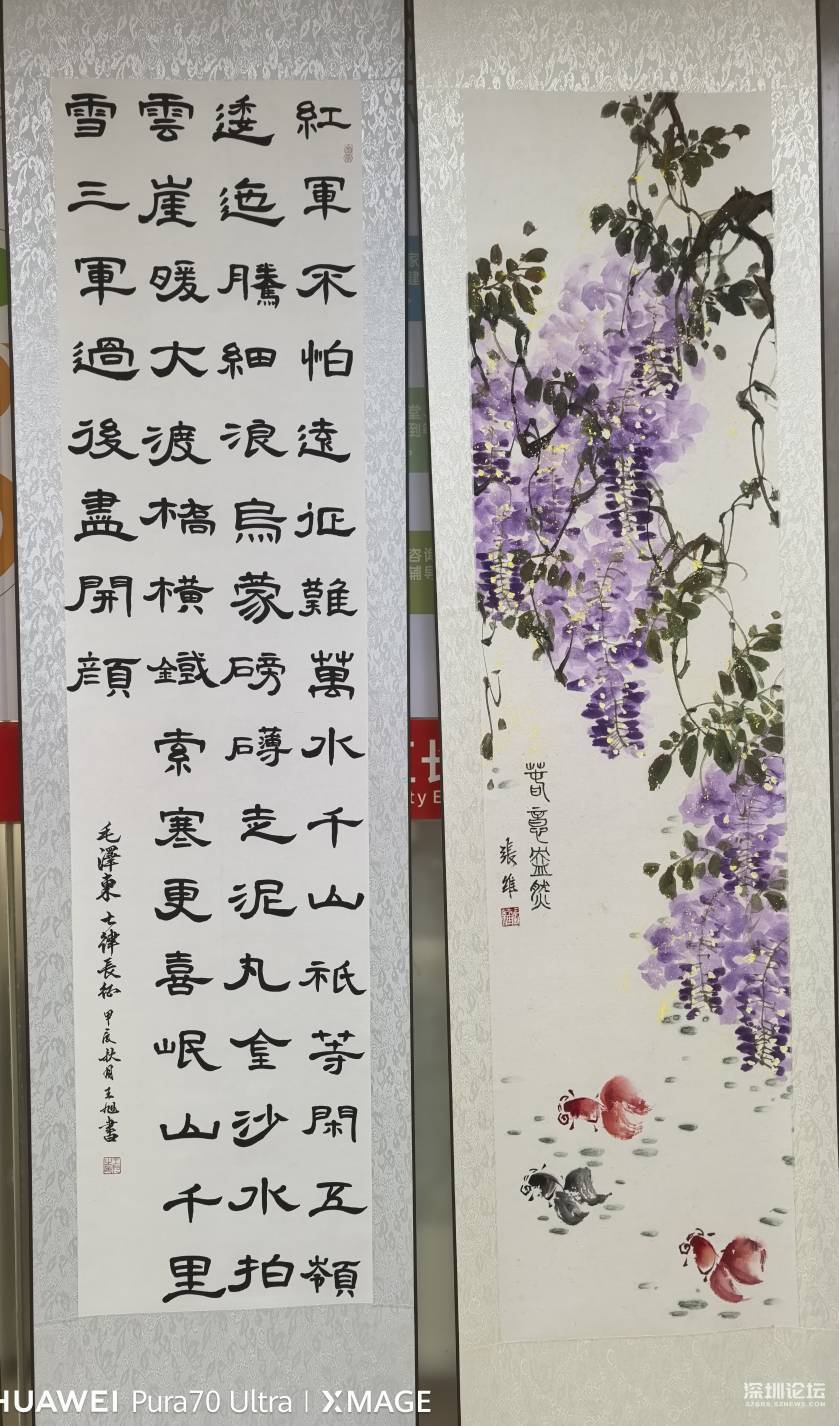 紅軍不怕遠征難萬水千山祇等閑五嶺
逶迤騰細浪烏蒙磅礴走泥丸金沙水拍
雲崖暖大渡橋橫鐵索寒更喜岷山千里
雪三軍過後盡開顔
毛澤東七律長征 甲辰秋月王旭書
春意盎然
張維
家
建
堂
到
咨询
辅导
ty E
HUAWEI Pura70 Ultra | XMAGE
深圳论坛
SZBBS.SZNEWS.COM